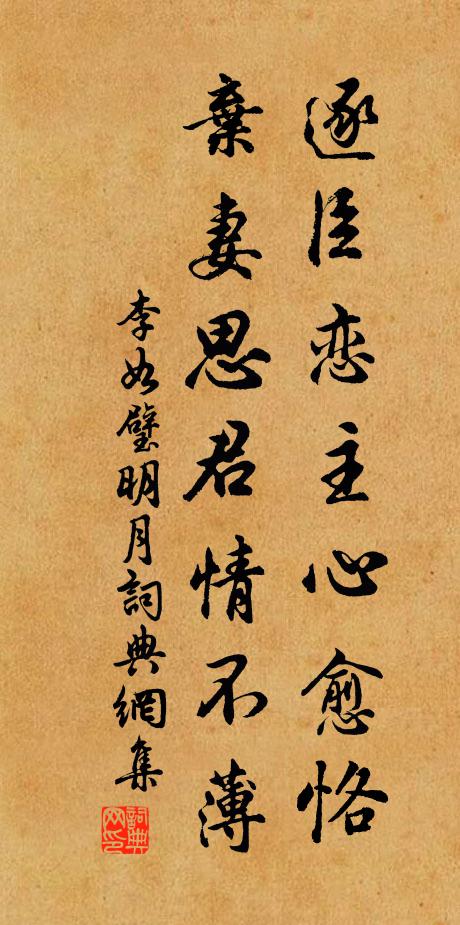 逐臣恋主心愈恪
棄妻思君情不薄
李如璧明月詞典網集
詞典网印